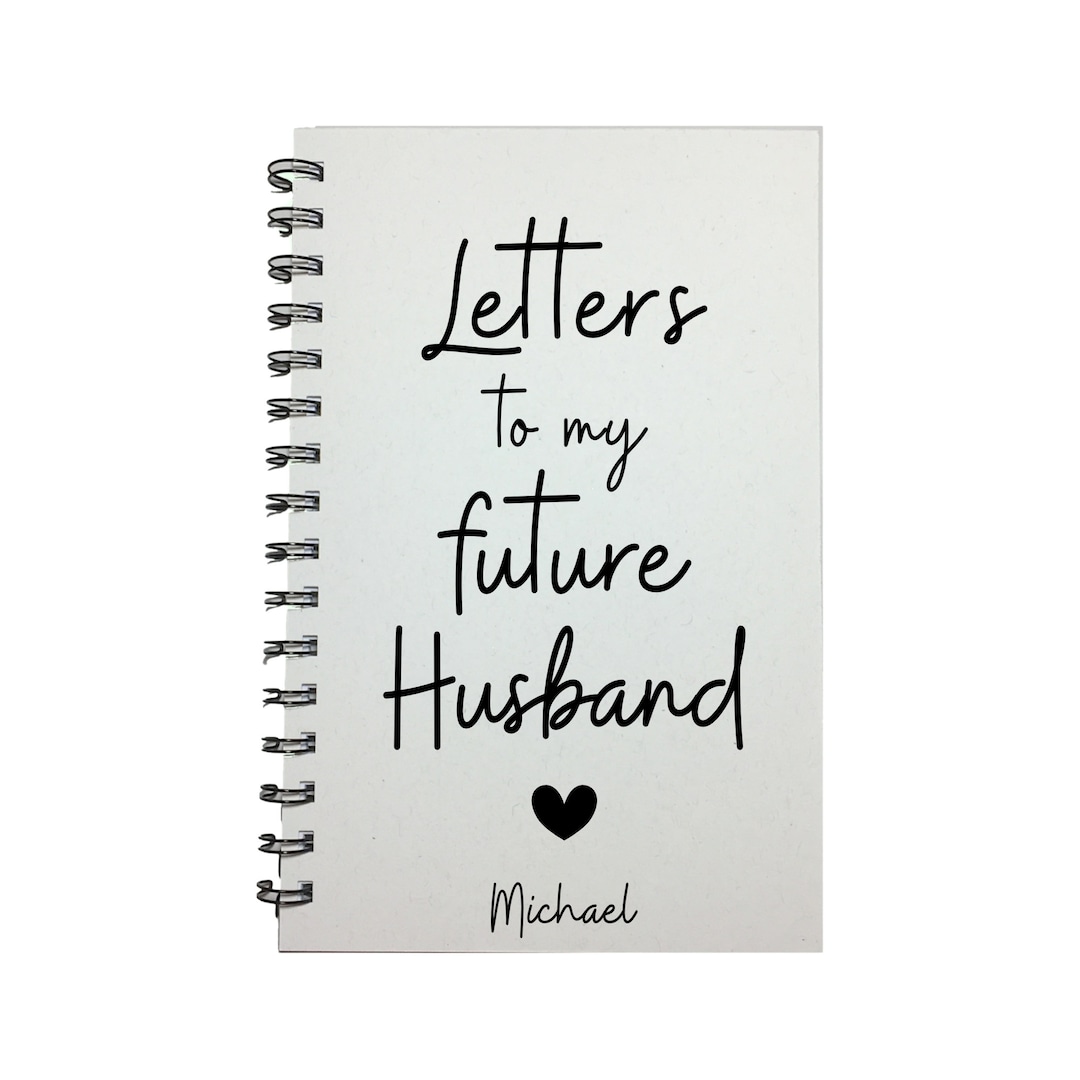 Letters
to my
future
Husband
Michael